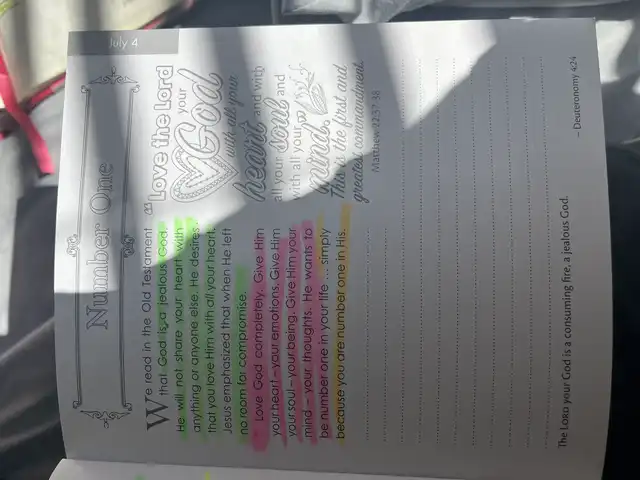 July 4
Number One
We read in the Old Testament
that God is a jealous God.
He will not share your heart with
anything or anyone else. He desires
that you love Him with all your heart.
Jesus emphasized that when He left
no room for compromise.
Love God completely. Give Him
your heart – your emotions. Give Him
your soul – your being. Give Him your
mind – your thoughts. He wants to
be number one in your life ... simply
because you are number one in His.
Love the Lord
your
God
with all your
heart and with
all your soul and
with all your
mind.
This is the first and
greatest commandment.
Matthew 22:37-38
The LORD your God is a consuming fire, a jealous God.
– Deuteronomy 4:24